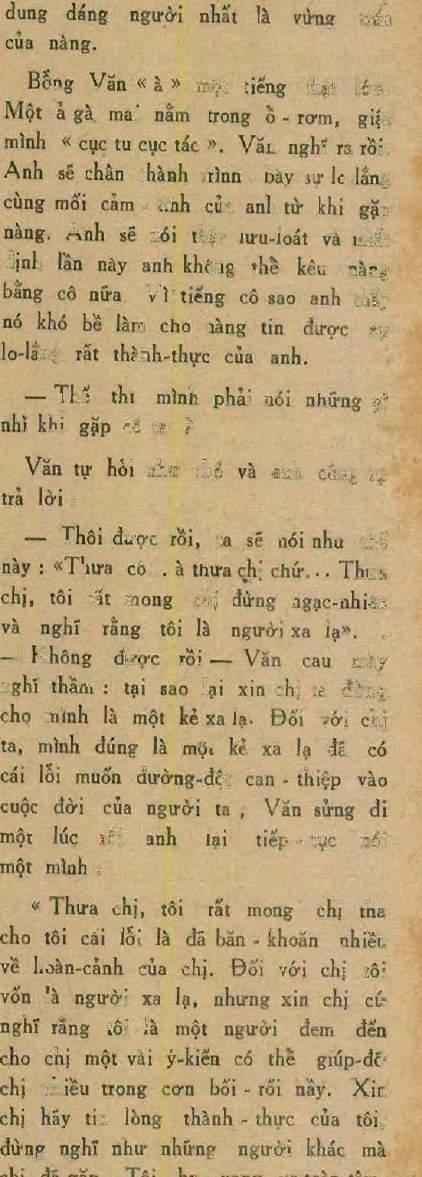 dung dáng người nhất là vừng
của nàng.
Bỗng Văn « à » một tiếng thật lớn.
Một ả gà mái nằm trong ổ - rơm, giật
mình « cục tu cục tác ». Văn nghĩ ra rồi.
Anh sẽ chân thành trình bày sự lo lắng
cùng mối cảm tình của anh từ khi gặp
nàng. Anh sẽ nói thật lưu-loát và nhất
định lần này anh không thể kêu nàng
bằng cô nữa vì tiếng cô sao anh thấy
nó khó bề làm cho nàng tin được sự
lo-lắng rất thành-thực của anh.
— Thế thì mình phải nói những gì
nhỉ khi gặp cô ta ?
Văn tự hỏi như thế và anh cũng tự
trả lời
— Thôi được rồi, ta sẽ nói như thế
này : «Thưa cô . à thưa chị chứ... Thưa
chị, tôi rất mong chị đừng ngạc-nhiên
và nghĩ rằng tôi là người xa lạ».
— Không được rồi — Văn cau mày
nghĩ thầm : tại sao lại xin chị ta đừng
cho mình là một kẻ xa lạ. Đối với chị
ta, mình đúng là một kẻ xa lạ đã có
cái lỗi muốn đường-đột can - thiệp vào
cuộc đời của người ta , Văn sửng đi
một lúc rồi anh lại tiếp - tục nói
một mình :
« Thưa chị, tôi rất mong chị tha
cho tôi cái lỗi là đã băn - khoăn nhiều
về hoàn-cảnh của chị. Đối với chị tôi
vốn là người xa lạ, nhưng xin chị cứ
nghĩ rằng tôi là một người đem đến
cho chị một vài ý-kiến có thể giúp-đỡ
chị nhiều trong cơn bối - rối nầy. Xin
chị hãy tin lòng thành - thực của tôi,
đừng nghĩ như những người khác mà
chị đã gặp. Tôi